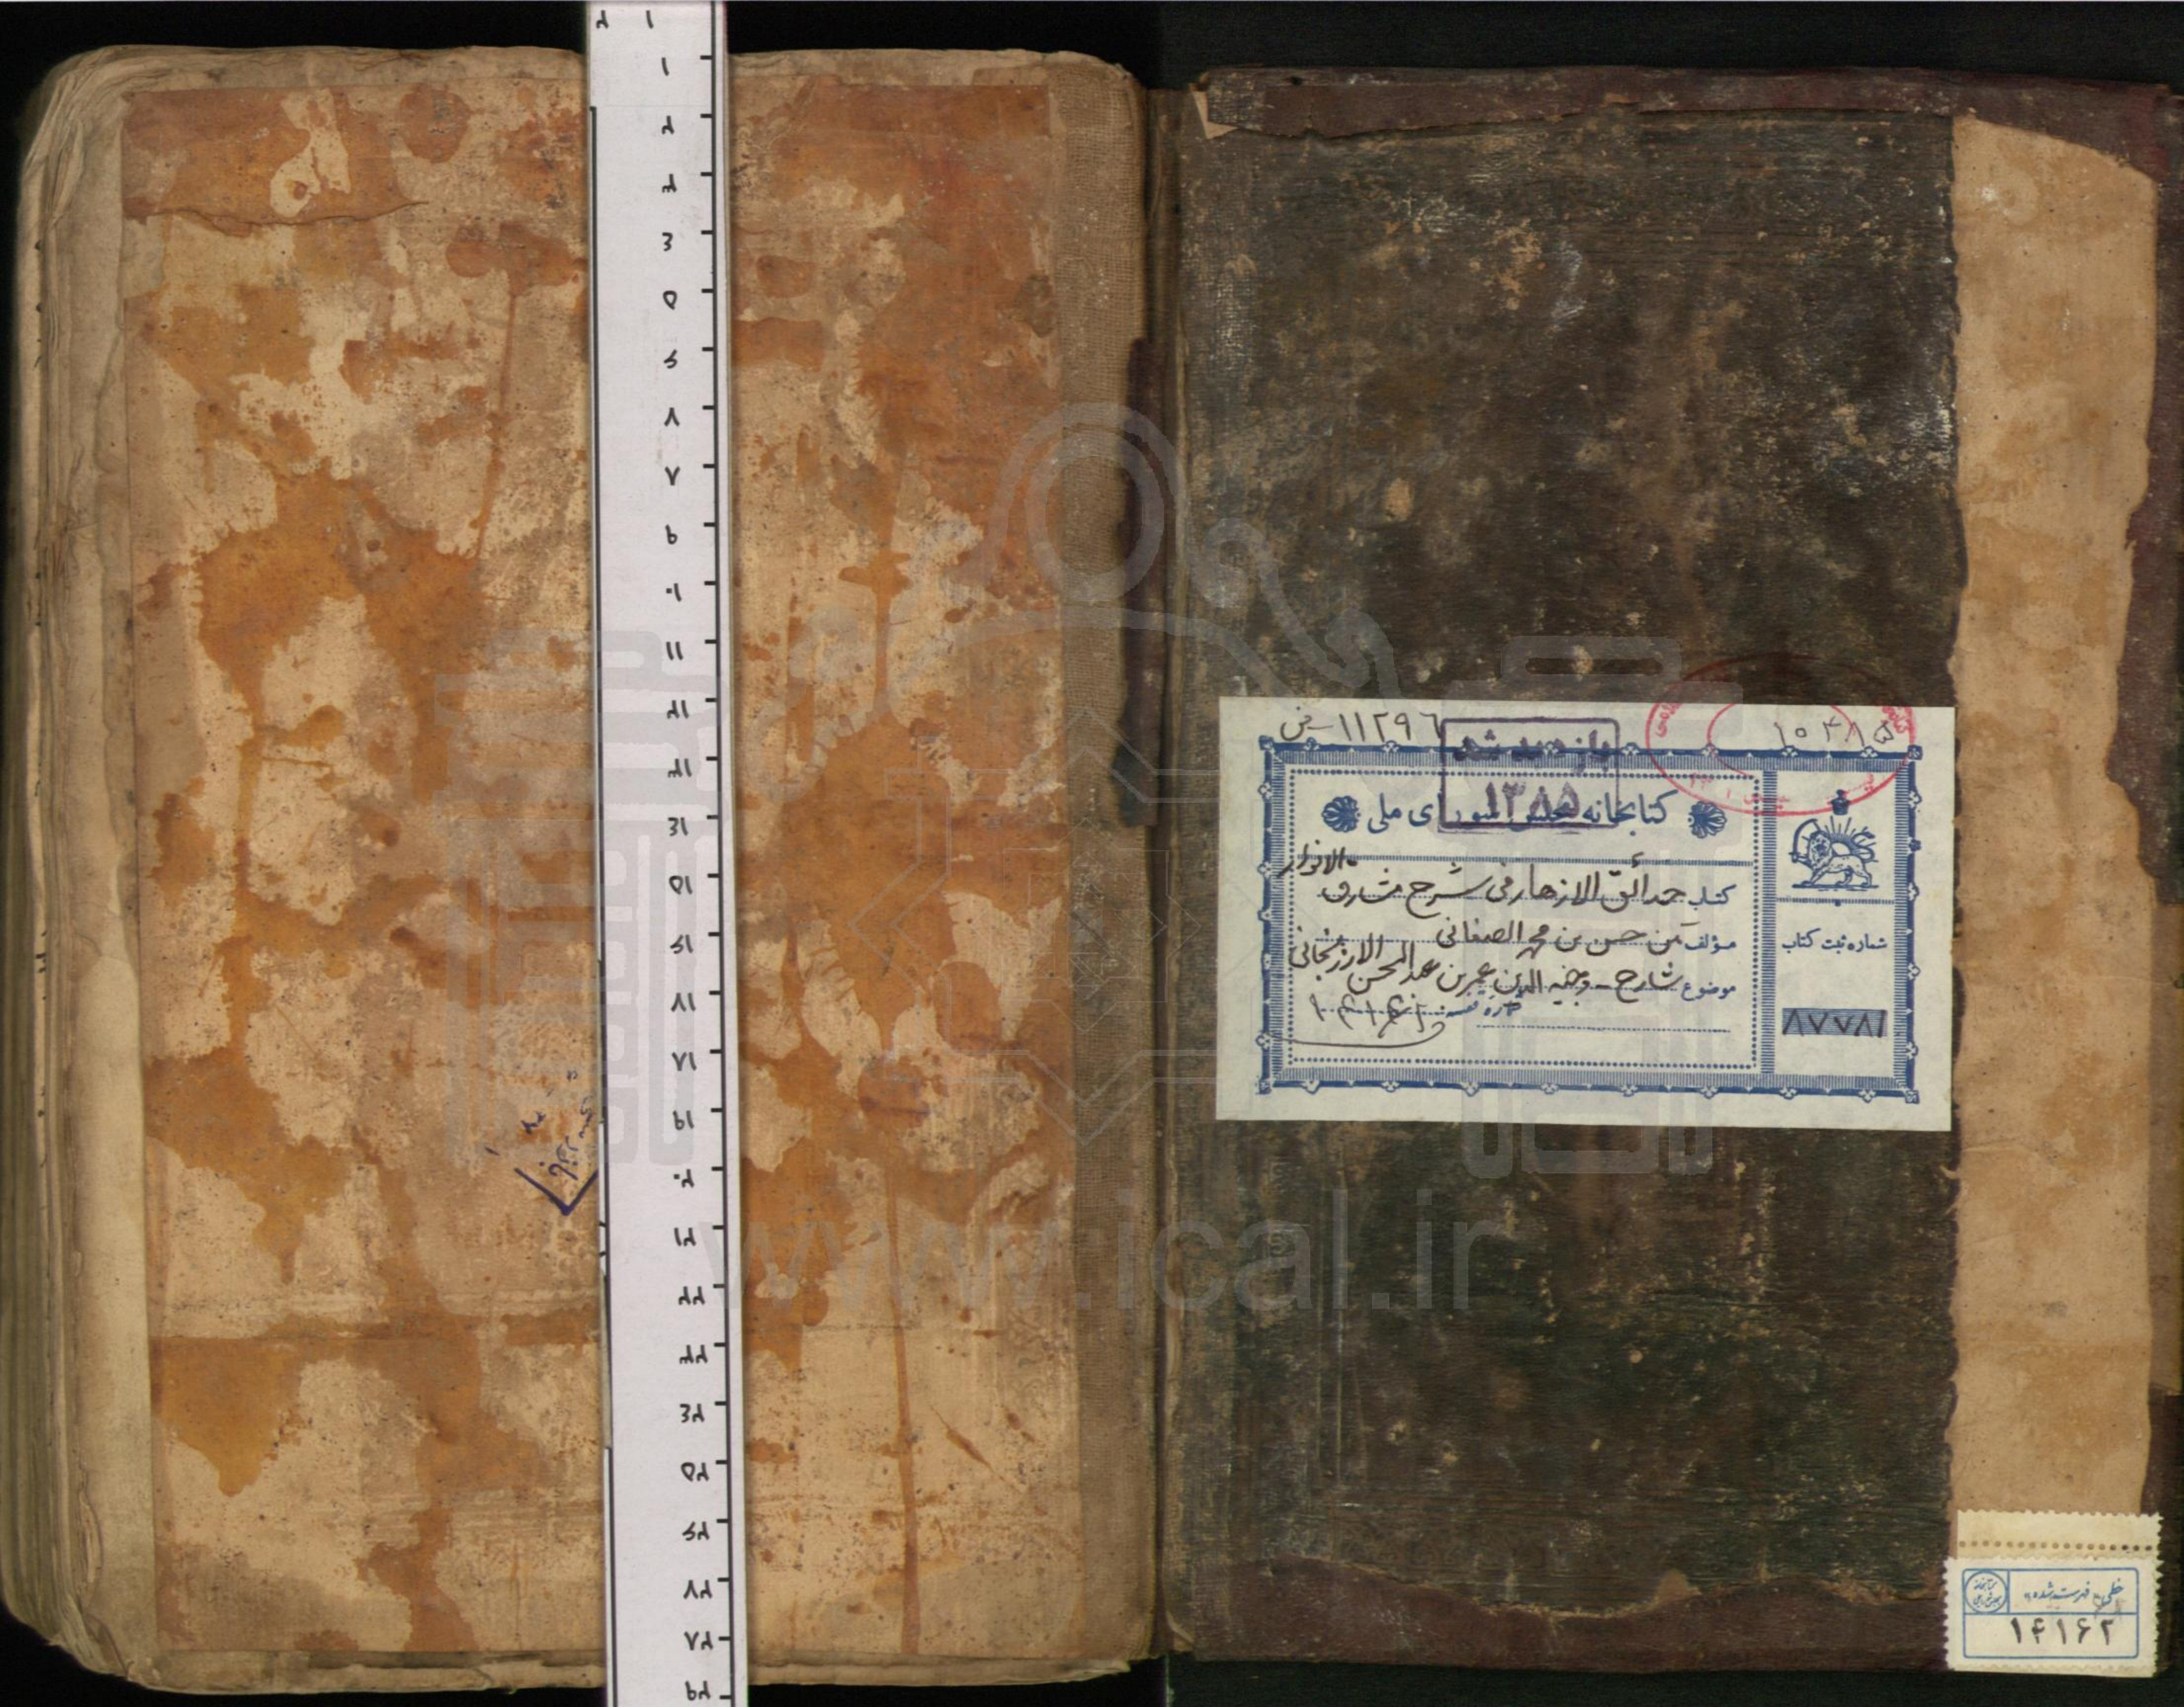 ۱۱۲۹۶ - ض
۱۰۴۱۵
بازدید شد
۱۳۸۵
کتابخانه مجلس شورای ملی
کتاب حدائق الازهار فی شرح مشارق الانوار
مؤلف متن حسن بن محمد الصغانی
موضوع شارح - وجیه الدین عمر بن عبدالمحسن الارزنجانی
شماره ثبت کتاب
۸۷۷۸۱
خطی «فهرست شده»
۱۴۱۶۲
www.ical.ir